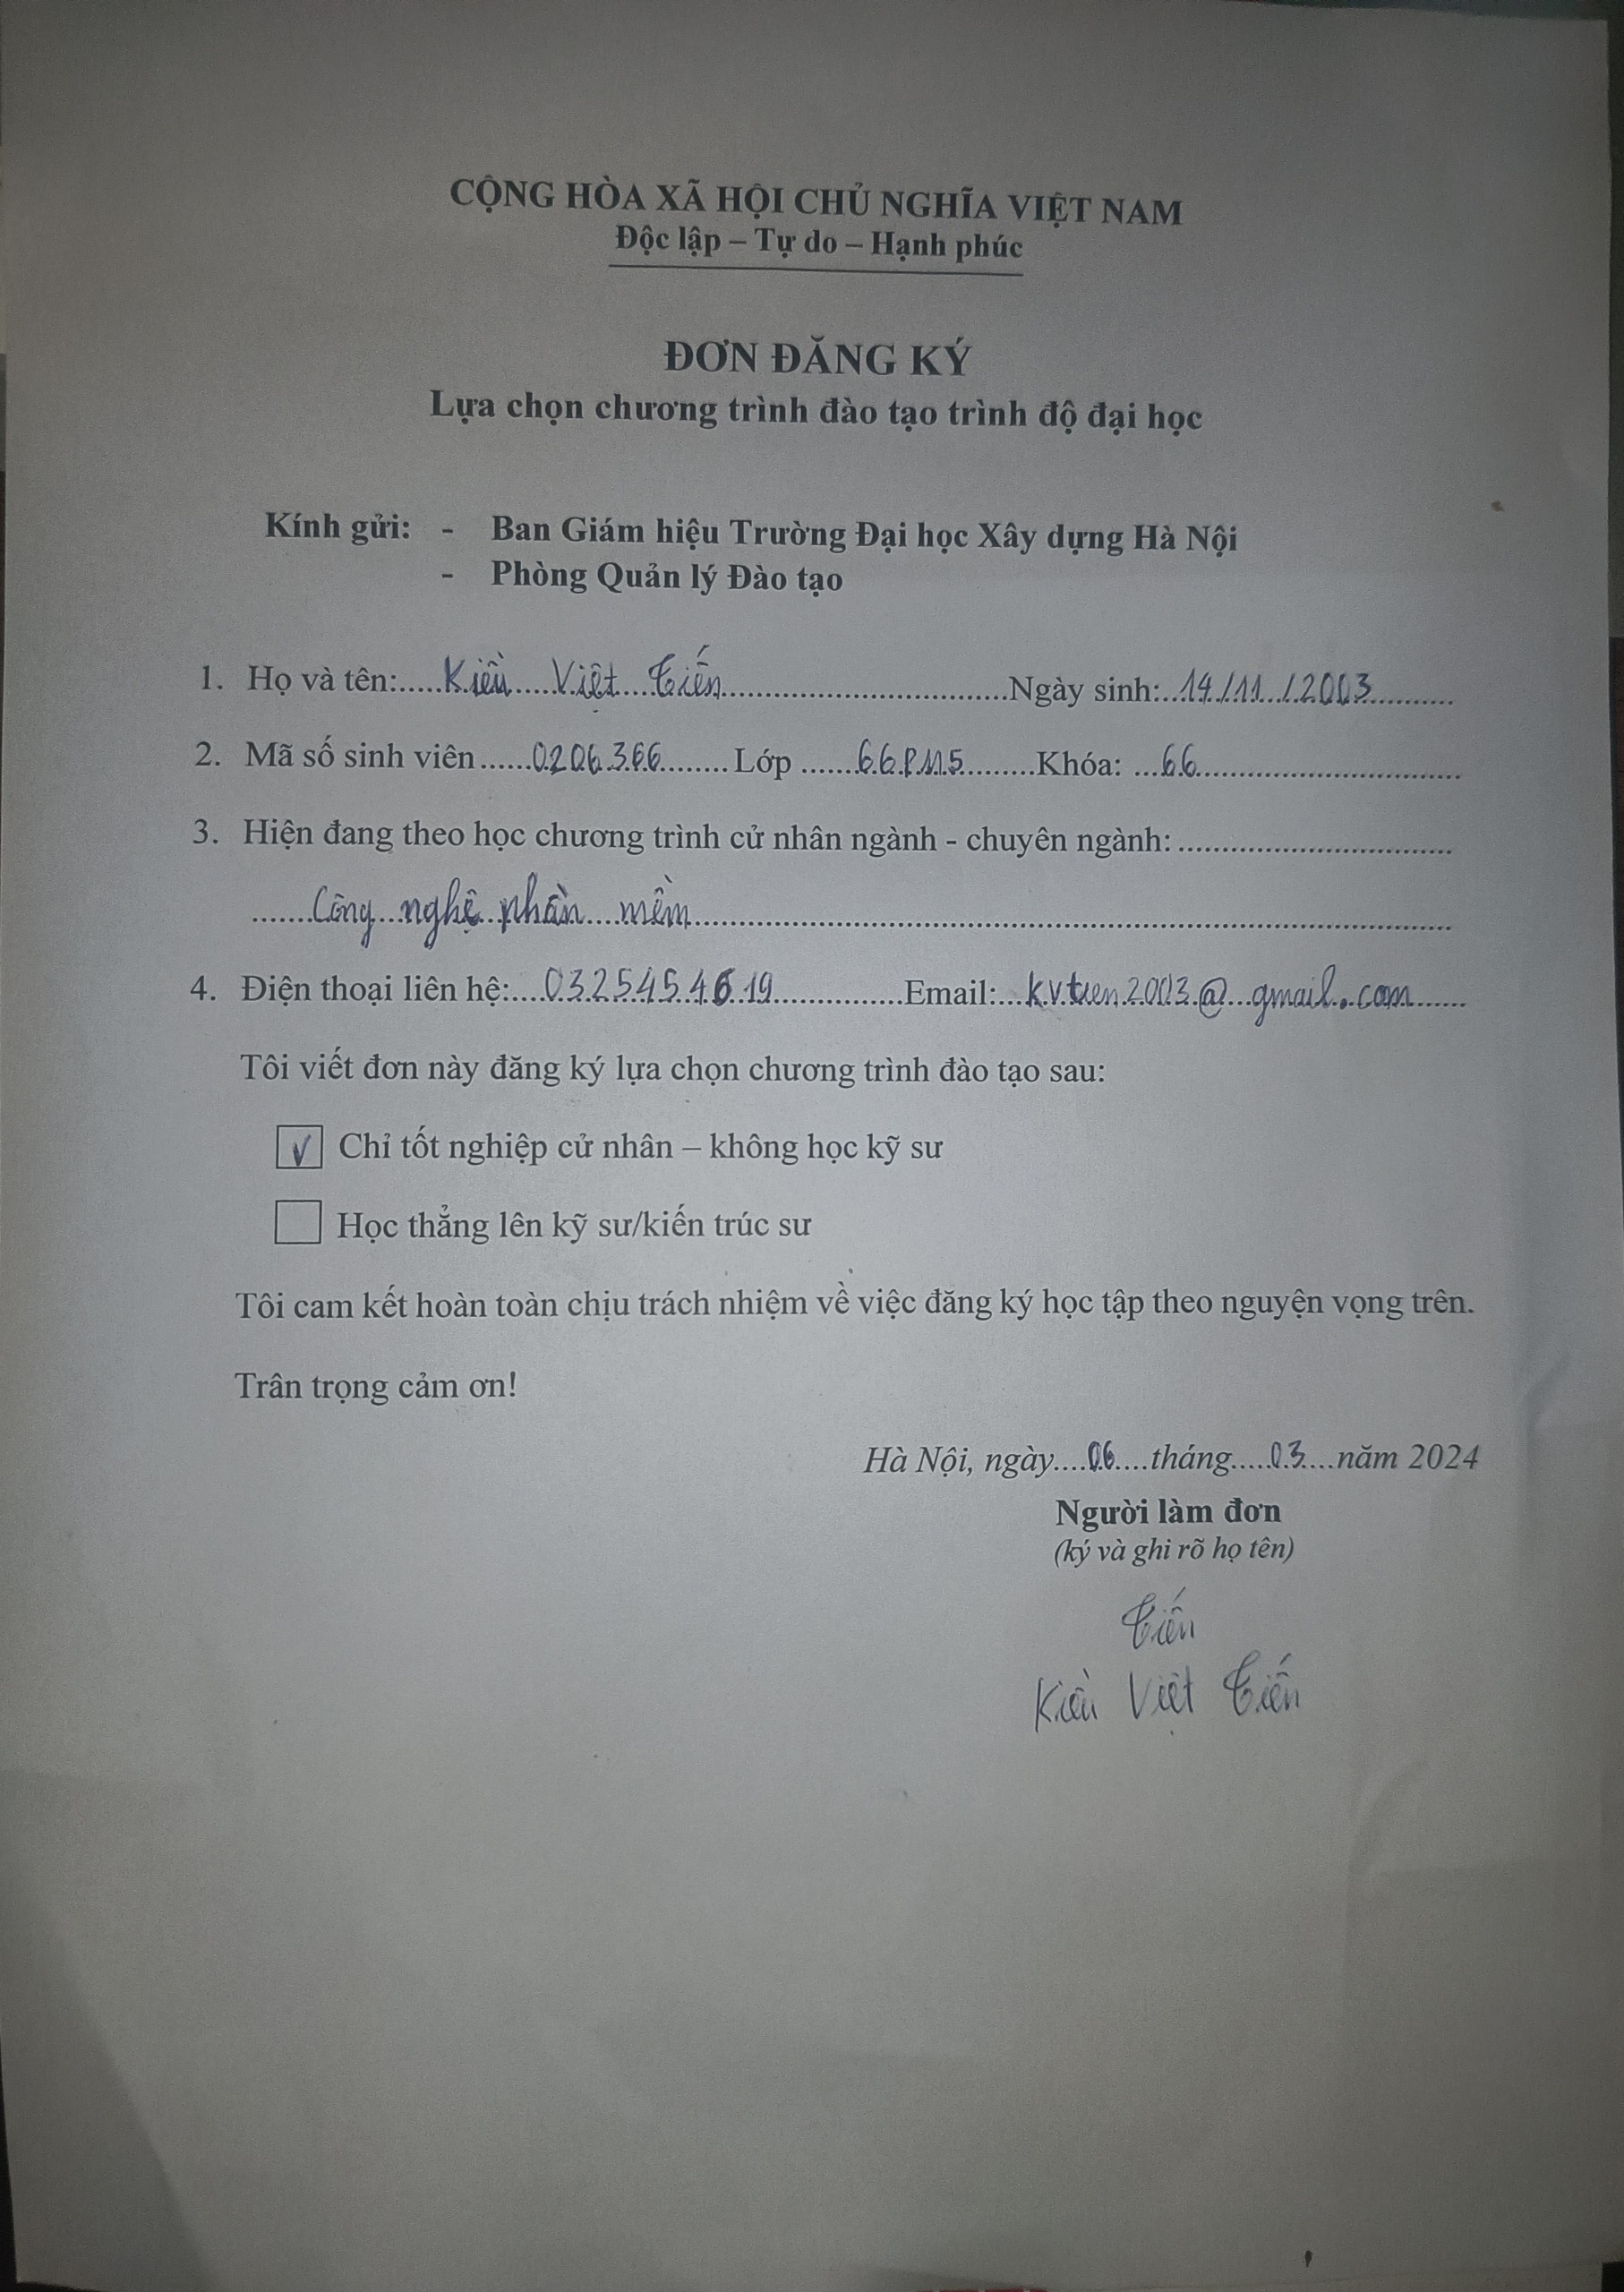 CỘNG HÒA XÃ HỘI CHỦ NGHĨA VIỆT NAM
Độc lập – Tự do – Hạnh phúc
ĐƠN ĐĂNG KÝ
Lựa chọn chương trình đào tạo trình độ đại học
Kính gửi: - Ban Giám hiệu Trường Đại học Xây dựng Hà Nội
- Phòng Quản lý Đào tạo
1. Họ và tên: Kiều Việt Tiến Ngày sinh: 14/11/2003
2. Mã số sinh viên 0206366 Lớp 66PM5 Khóa: 66
3. Hiện đang theo học chương trình cử nhân ngành - chuyên ngành:
Công nghệ phần mềm
4. Điện thoại liên hệ: 0325454619 Email: kvtien2003@gmail.com
Tôi viết đơn này đăng ký lựa chọn chương trình đào tạo sau:
√ Chỉ tốt nghiệp cử nhân – không học kỹ sư
Học thẳng lên kỹ sư/kiến trúc sư
Tôi cam kết hoàn toàn chịu trách nhiệm về việc đăng ký học tập theo nguyện vọng trên.
Trân trọng cảm ơn!
Hà Nội, ngày 06 tháng 03 năm 2024
Người làm đơn
(ký và ghi rõ họ tên)
Tiến
Kiều Việt Tiến